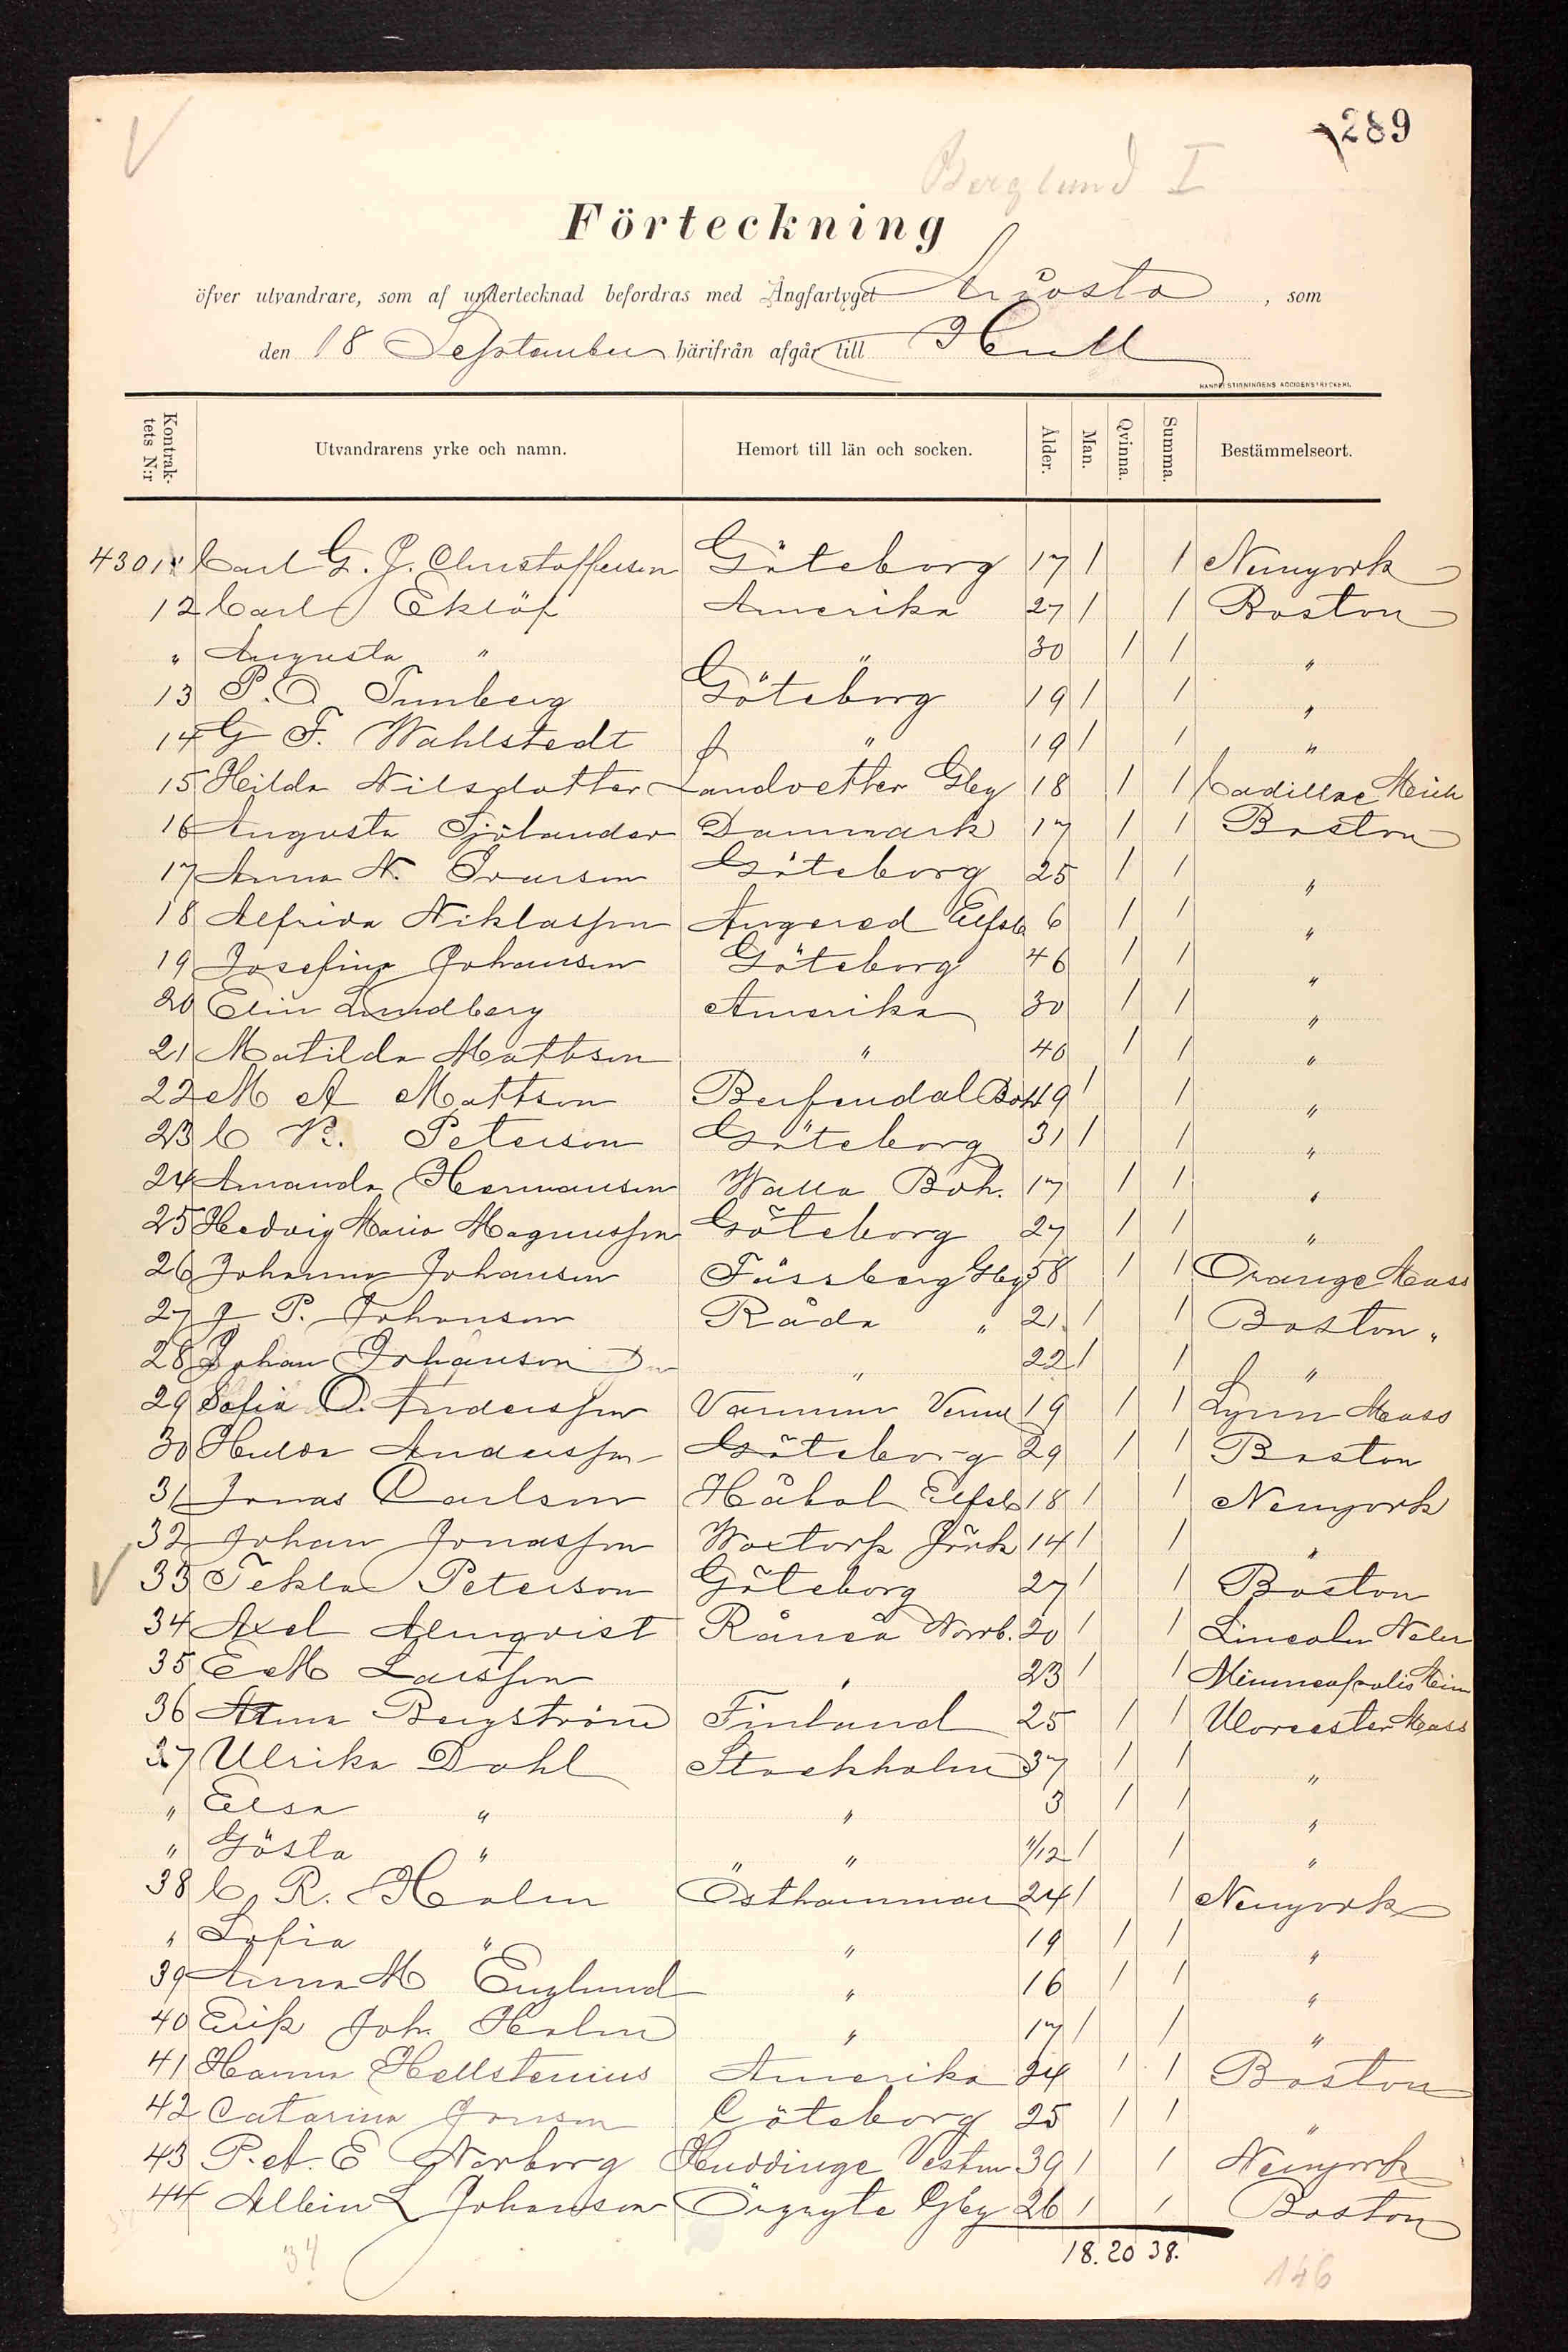 289
Berglund I
Förteckning
öfver utvandrare, som af undertecknad befordras med Ångfartyget Ariosto, som
den 18 September härifrån afgår till Hull
Kontraktets N:r Utvandrarens yrke och namn. Hemort till län och socken. Ålder. Man. Qvinna. Summa. Bestämmelseort.
43011 Carl G. J. Christoffersen Göteborg 17 1 1 Newyork
12 Carl Eklöf Amerika 27 1 1 Boston
" Augusta " " 30 1 1 "
13 P. O. Tunberg Göteborg 19 1 1 "
14 G F. Wahlstedt " 19 1 1 "
15 Hilda Nilsdotter Landvetter Gbg 18 1 1 Cadillac Mich
16 Augusta Sjölander Danmark 17 1 1 Boston
17 Anna N. Ivarson Göteborg 25 1 1 "
18 Alfrida Niklasson Angered Elfsb 6 1 1 "
19 Josefina Johanson Göteborg 46 1 1 "
20 Elin Lundberg Amerika 30 1 1 "
21 Matilda Mattson " 40 1 1 "
22 M A Mattson Berfendal Boh 49 1 1 "
23 C R. Peterson Göteborg 31 1 1 "
24 Amanda Hermanson Walla Boh. 17 1 1 "
25 Hedvig Maria Magnusson Göteborg 27 1 1 "
26 Johanna Johanson Fässberg Gbg 58 1 1 Orange Mass
27 J P. Johanson Råda " 21 1 1 Boston "
28 Johan Johanson " 22 1 1 "
29 Sofia O. Andersson Varnum Verml 19 1 1 Lynn Mass
30 Hulda Andersson Göteborg 29 1 1 Boston
31 Jonas Carlson Håbol Elfsb 18 1 1 Newyork
32 Johan Jonasson Woxtorp Jönk 14 1 1 "
33 Tekla Peterson Göteborg 27 1 1 Boston
34 Axel Almqvist Råneå Norrb. 20 1 1 Lincoln Nebr
35 E M Larsson " 23 1 1 Minneapolis Minn
36 Alma Bergström Finland 25 1 1 Worcester Mass
37 Ulrika Dahl Stockholm 37 1 1 "
" Elsa " " 3 1 1 "
" Gösta " " 11/12 1 1 "
38 C. R. Holm Östhammar 24 1 1 Newyork
" Sofia " " 19 1 1 "
39 Anna M Englund " 16 1 1 "
40 Erik Joh. Holm " 17 1 1 "
41 Hanna Hellstenius Amerika 24 1 1 Boston
42 Catarina Jonson Göteborg 25 1 1 "
43 P. A. E Norborg Huddinge Vestm 39 1 1 Newyork
44 Albin L Johanson Örgryte Gbg 26 1 1 Boston
18. 20 38.
34
146